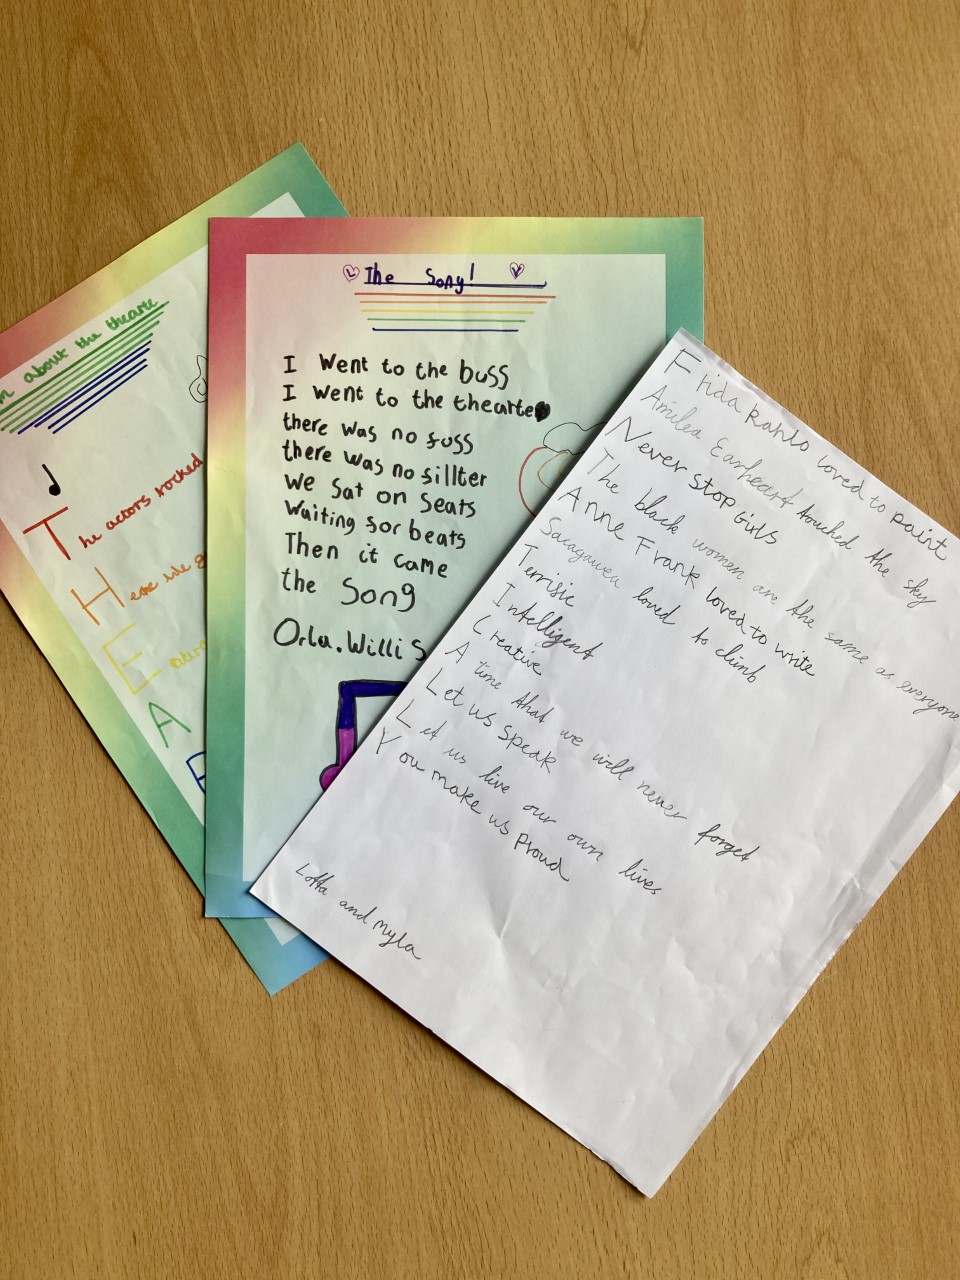 about the thearte
The actors rocked
Here we
E
A
L The Song! Y
I Went to the buss
I went to the thearte
there was no fuss
there was no sillter
We Sat on Seats
Waiting for beats
Then it came
the Song
Orla.Willis
Frida Kahlo loved to paint
Amilea Earheart touched the sky
Never stop Girls
The black women are the same as everyone
Anne Frank loved to write
Sacagawea loved to climb
Terrific
Intelligent
Creative
A time that we will never forget
Let us speak
Let us live our own lives
You make us proud
Lotta and Myla